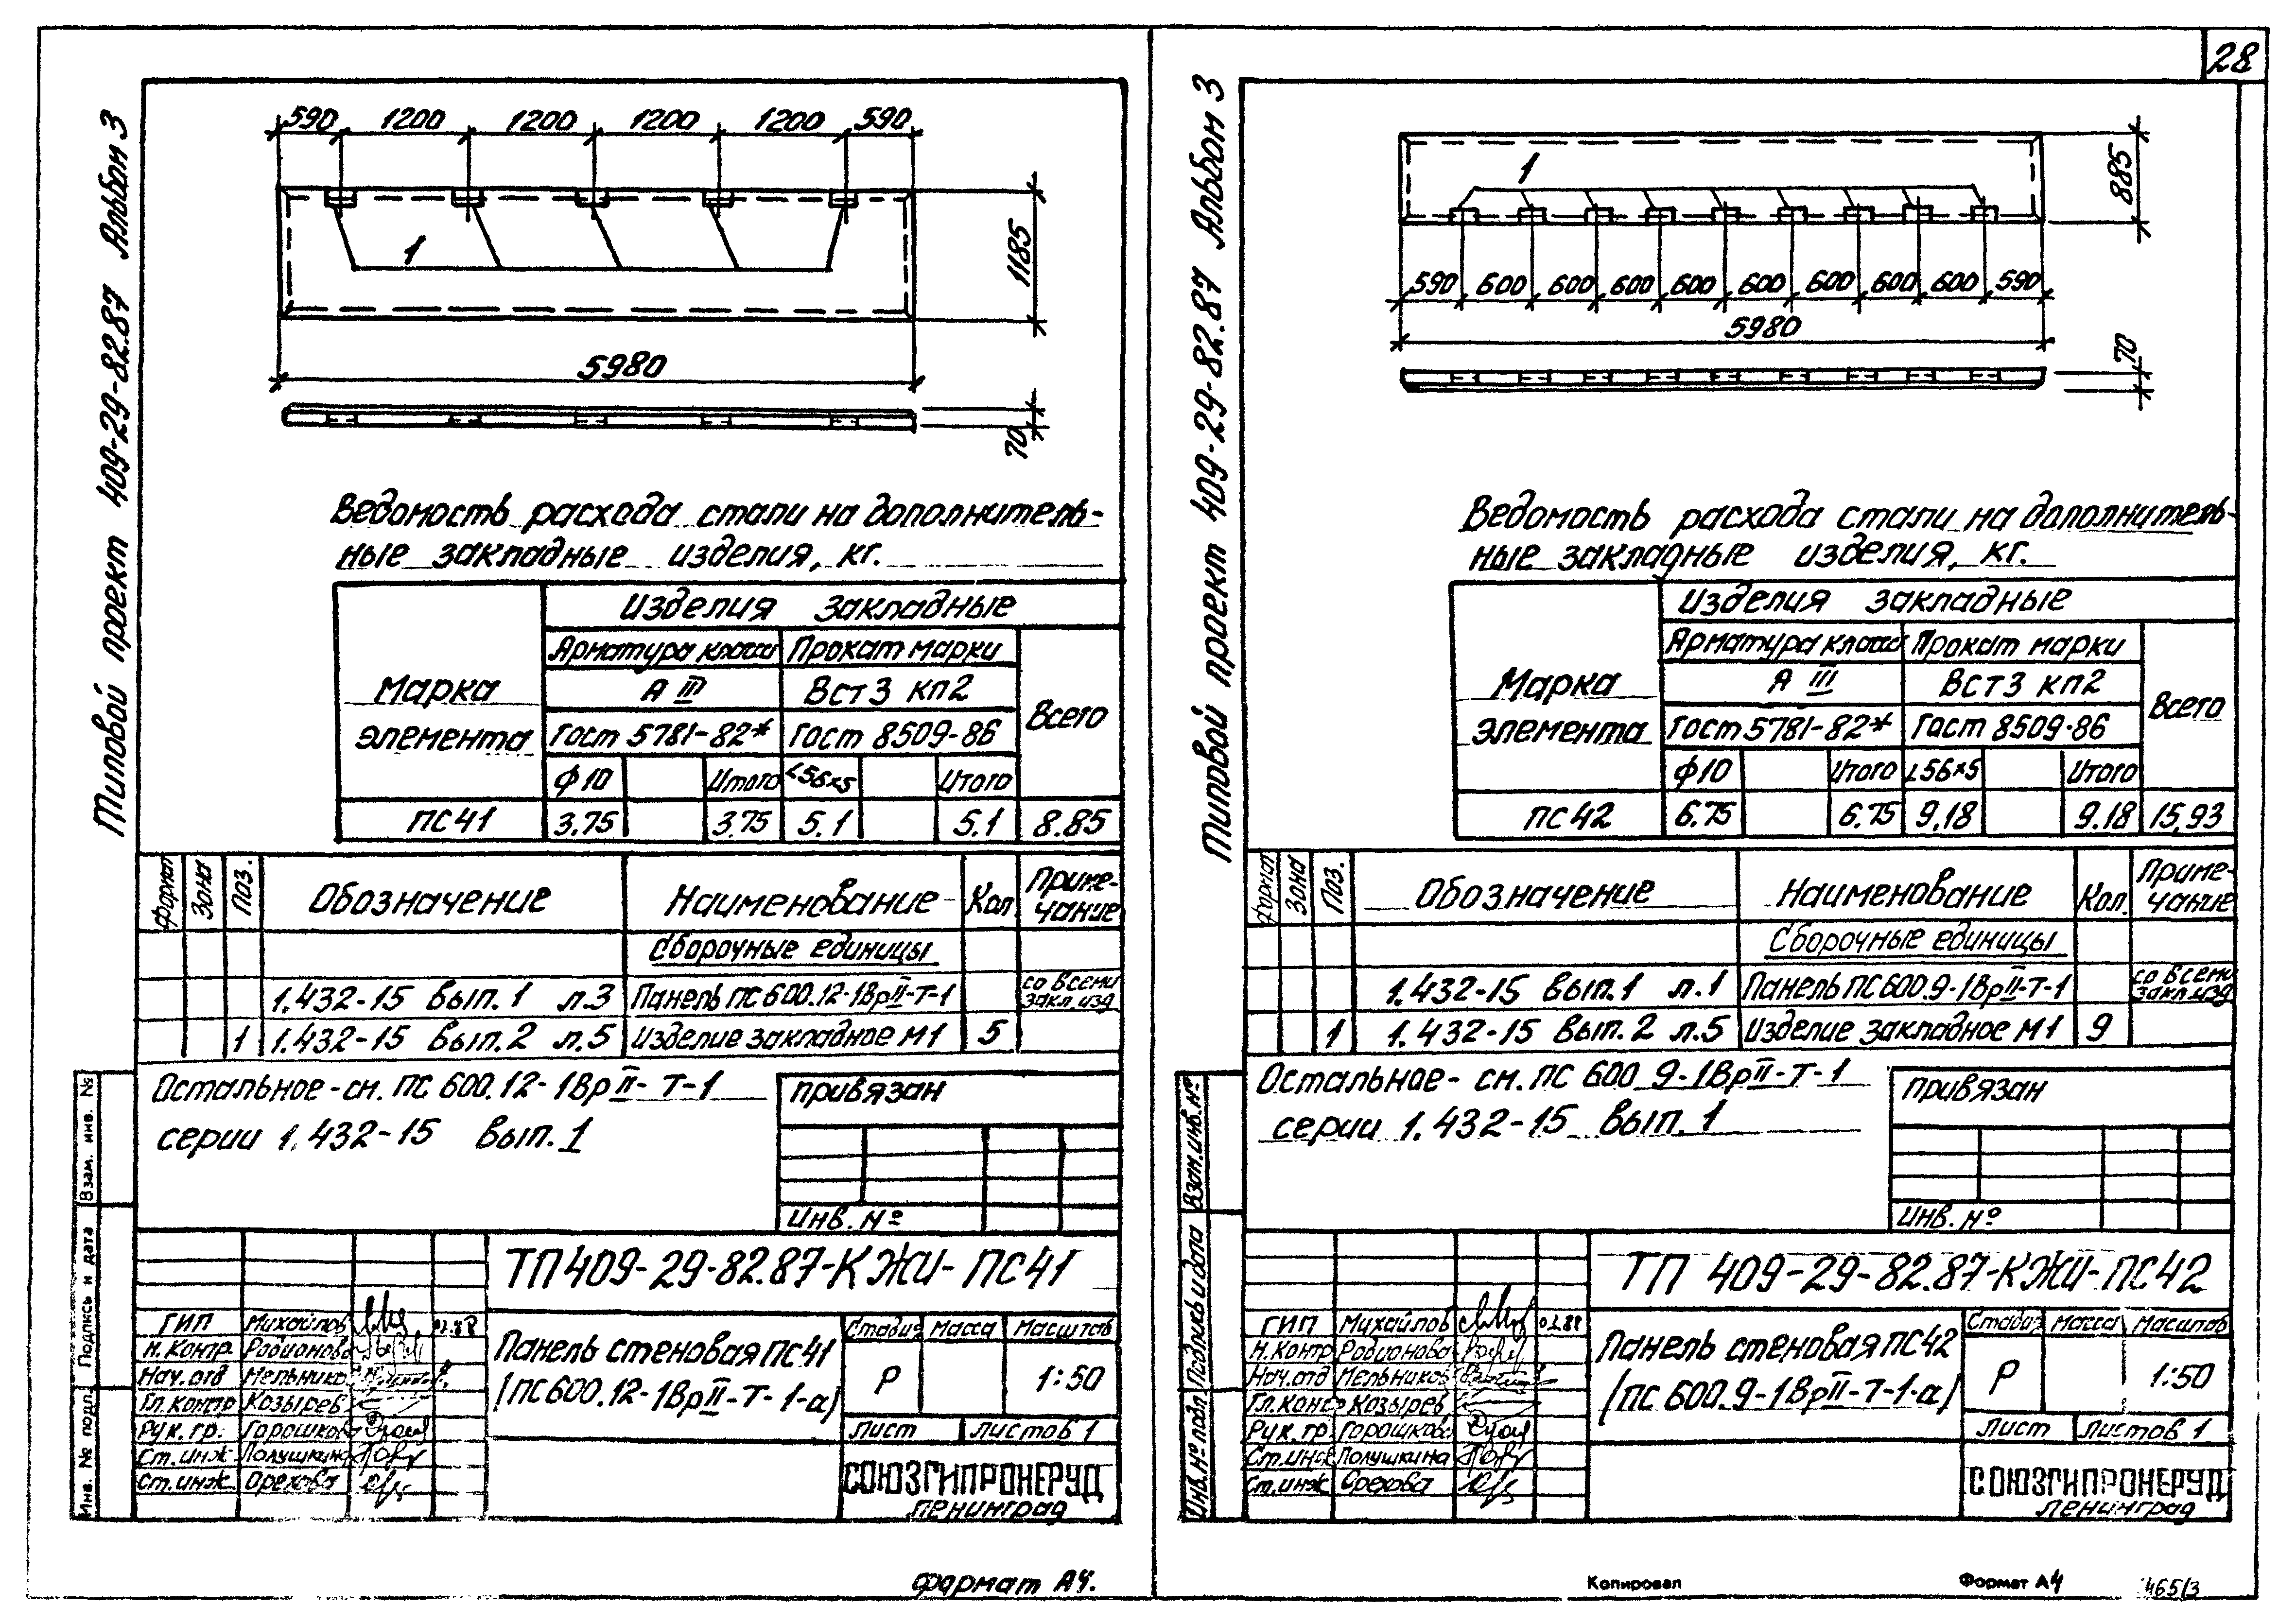 28
Типовой проект 409-29-82.87 Альбом 3
590 1200 1200 1200 1200 590
1
1185
5980
70
Ведомость расхода стали на дополнитель-
ные закладные изделия, кг.
Марка элемента
Изделия закладные
Арматура класса Прокат марки
Всего
А III ВСт3 кп2
ГОСТ 5781-82* ГОСТ 8509-86
ф10 Итого ∠56×5 Итого
ПС41 3.75 3.75 5.1 5.1 8.85
Формат Зона Поз. Обозначение Наименование Кол Приме-
чание
Сборочные единицы
1.432-15 вып.1 л.3 Панель ПС600.12-1ВрII-Т-1 со всеми
закл.изд.
1 1.432-15 вып.2 л.5 Изделие закладное М1 5
Остальное - см. ПС 600.12-1ВрII-Т-1
серии 1.432-15 вып.1
Привязан
Инв. №
Взам. инв. №
Подпись и дата
Инв. № подл.
ТП 409-29-82.87-КЖИ-ПС41
ГИП Михайлов
Н.контр. Родионова
Нач.отд Мельников
Гл.контр Козырев
Рук. гр. Горошков
Ст.инж Полушкина
Ст.инж. Орехова
Панель стеновая ПС41
(ПС600.12-1ВрII-Т-1-а)
Стадия Масса Масштаб
Р 1:50
Лист Листов 1
СОЮЗГИПРОНЕРУД
Ленинград
Формат А4.
Типовой проект 409-29-82.87 Альбом 3
1
885
590 600 600 600 600 600 600 600 600 590
5980
70
Ведомость расхода стали на дополнитель-
ные закладные изделия, кг.
Марка элемента
Изделия закладные
Арматура класса Прокат марки
Всего
А III ВСт3 кп2
ГОСТ 5781-82* ГОСТ 8509-86
ф10 Итого ∠56×5 Итого
ПС42 6.75 6.75 9.18 9.18 15,93
Формат Зона Поз. Обозначение Наименование Кол. Приме-
чание
Сборочные единицы
1.432-15 вып.1 л.1 Панель ПС600.9-1ВрII-Т-1 со всеми
закл.изд
1 1.432-15 вып.2 л.5 Изделие закладное М1 9
Остальное - см. ПС 600.9-1ВрII-Т-1
серии 1.432-15 вып.1
Привязан
Инв. №
Взам.инв.№
Подпись и дата
Инв.№ подл.
ТП 409-29-82.87-КЖИ-ПС42
ГИП Михайлов 02.88
Н.контр Родионова
Нач.отд Мельников
Гл.контр Козырев
Рук. гр Горошков
Ст.инж Полушкина
Ст.инж Орехова
Панель стеновая ПС42
(ПС 600.9-1ВрII-Т-1-а)
Стадия Масса Масштаб
Р 1:50
Лист Листов 1
СОЮЗГИПРОНЕРУД
Ленинград
Копировал Формат А4 465/3